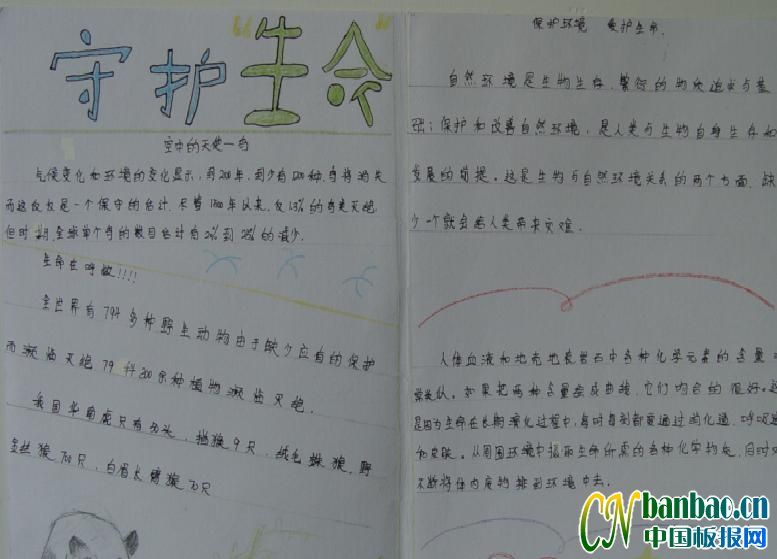 守护生命
空中的天使—鸟
气候变化和环境的变化显示，到200年，至少有1200种鸟将消失
而这仅仅是一个保守的估计．尽管1800年以来，仅1.3%的鸟类灭绝．
但时期，全球单个鸟的数目估计有20%到25%的减少．
生命在呼救!!!!
全世界有794多种野生动物由于缺少应有的保护
而濒临灭绝
余种植物濒临灭绝．
我国华南虎只有
9只，
野
金丝猴
只，白眉长臂猿30只
保护环境 爱护生命．
自然环境是生物生存、繁衍的物质
与基
础；保护和改善自然环境，是人类与生物自身生存和
发展的前提。这是生物与自然环境关系的两个方面．缺
少一个就会给人类带来灾难．
人体血液和地壳地表岩石中各种化学元素的含量
类似．如果把两种含量变成曲线，它们吻合的很好。这
是因为生命在长期演化过程中，每时每刻都要通过消化道、呼吸道
和皮肤。从周围环境中摄取生命所需的各种化学物质，同时又
不断将体内废物排到环境中去。
CN banbao.cn
中国板报网